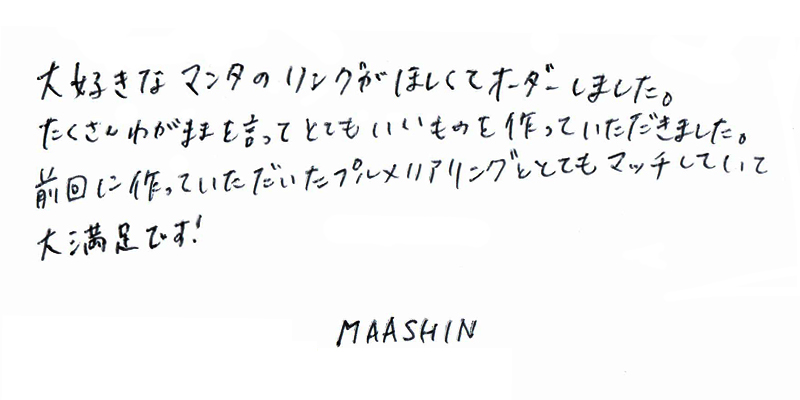 大好きなマンタのリングがほしくてオーダーしました。
たくさんわがままを言ってとてもいいものを作っていただきました。
前回に作っていただいたプルメリアリングととてもマッチしていて
大満足です!
MAASHIN